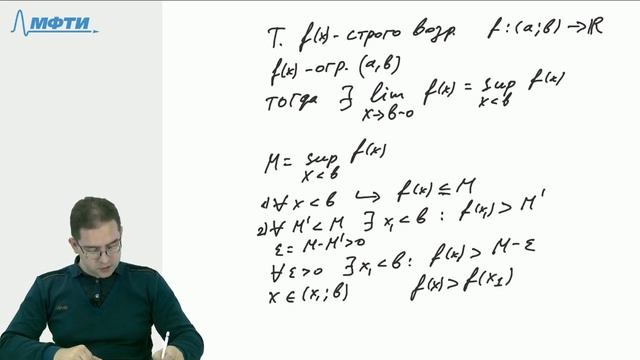 МФТИ
Т. f(x) - строго возр. f: (a; b) → ℝ
f(x) - огр. (a, b)
тогда ∃ lim f(x) = sup f(x)
x→b-0 x<b
M = sup f(x)
x<b
1) ∀ x < b ↪ f(x) ≤ M
2) ∀ M' < M ∃ x₁ < b : f(x₁) > M'
ε = M - M' > 0
∀ ε > 0 ∃ x₁ < b : f(x) > M - ε
x ∈ (x₁; b) f(x) > f(x₁)